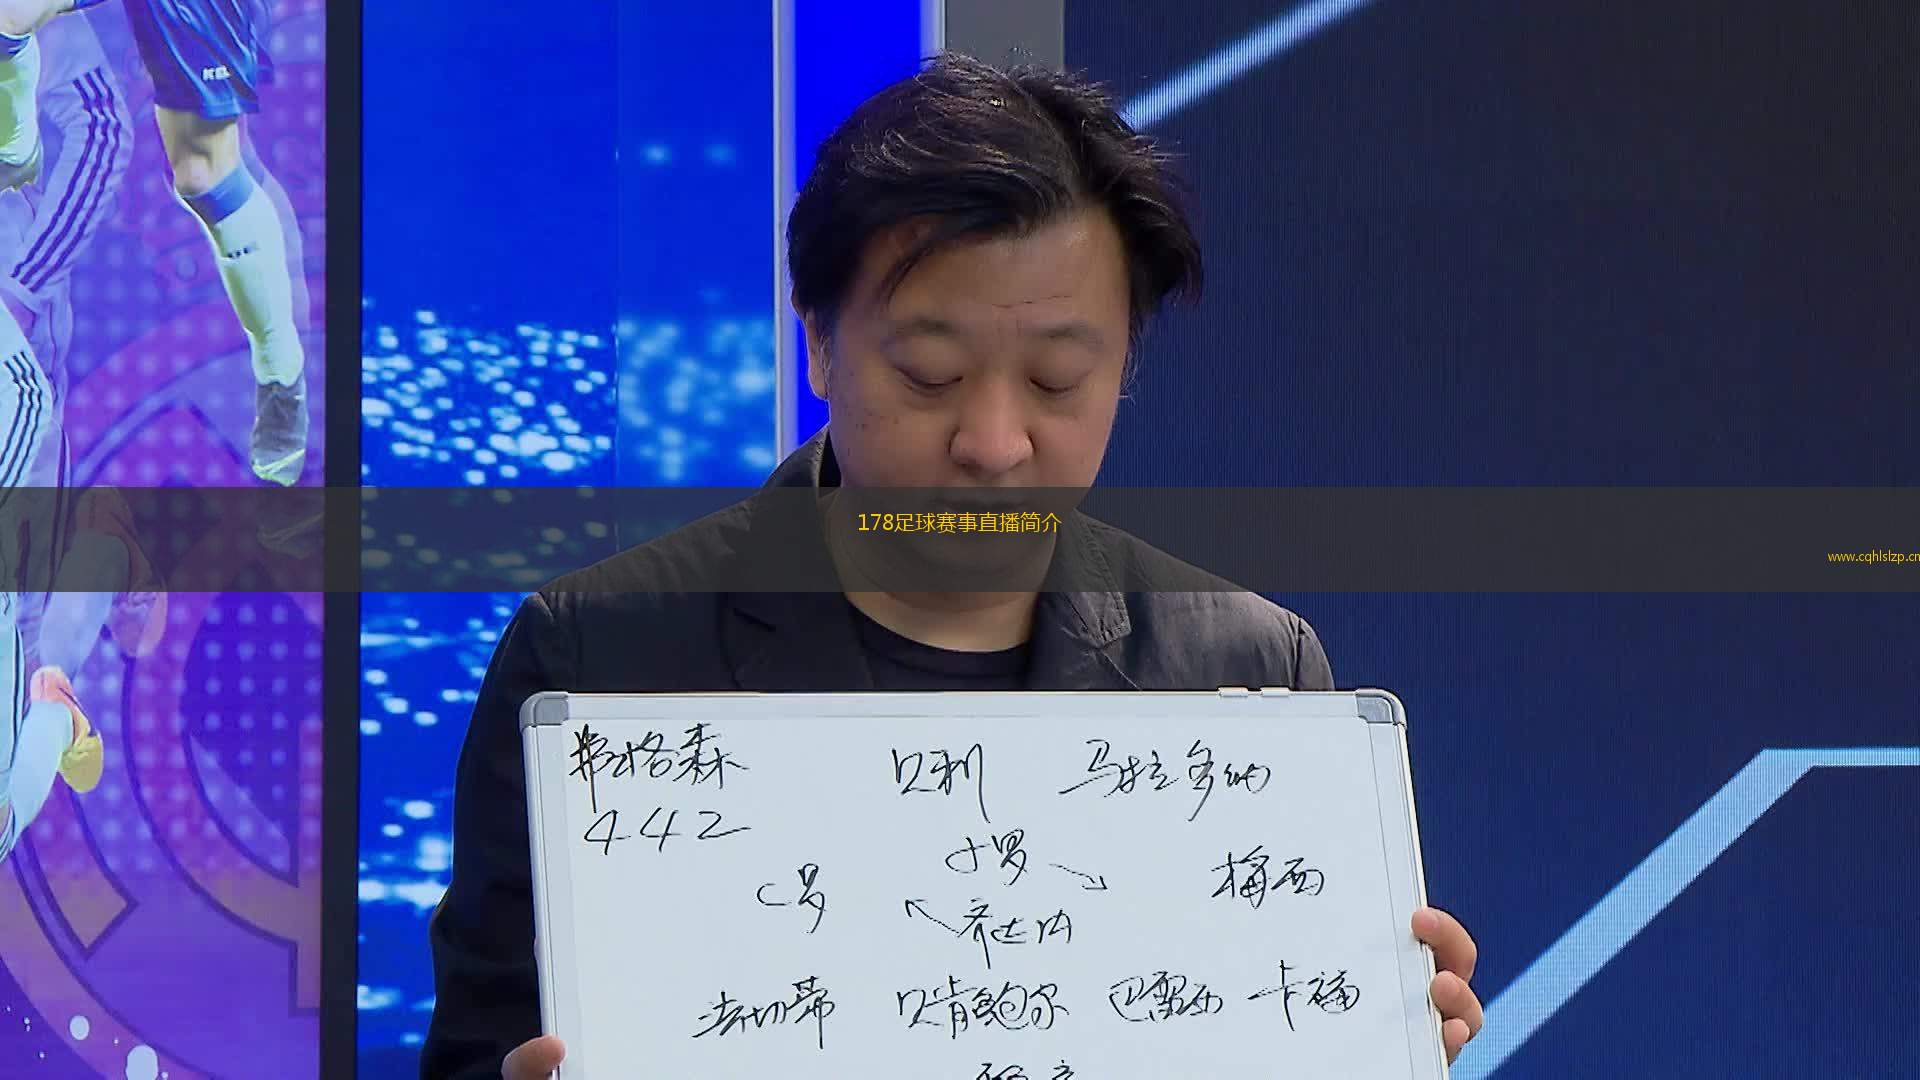 KEL
178足球赛事直播简介
www.cqhlslzp.cn
弗格森 贝利 马拉多纳
442
小罗
C罗 梅西
齐达内
法切蒂 贝肯鲍尔 巴雷西 卡福